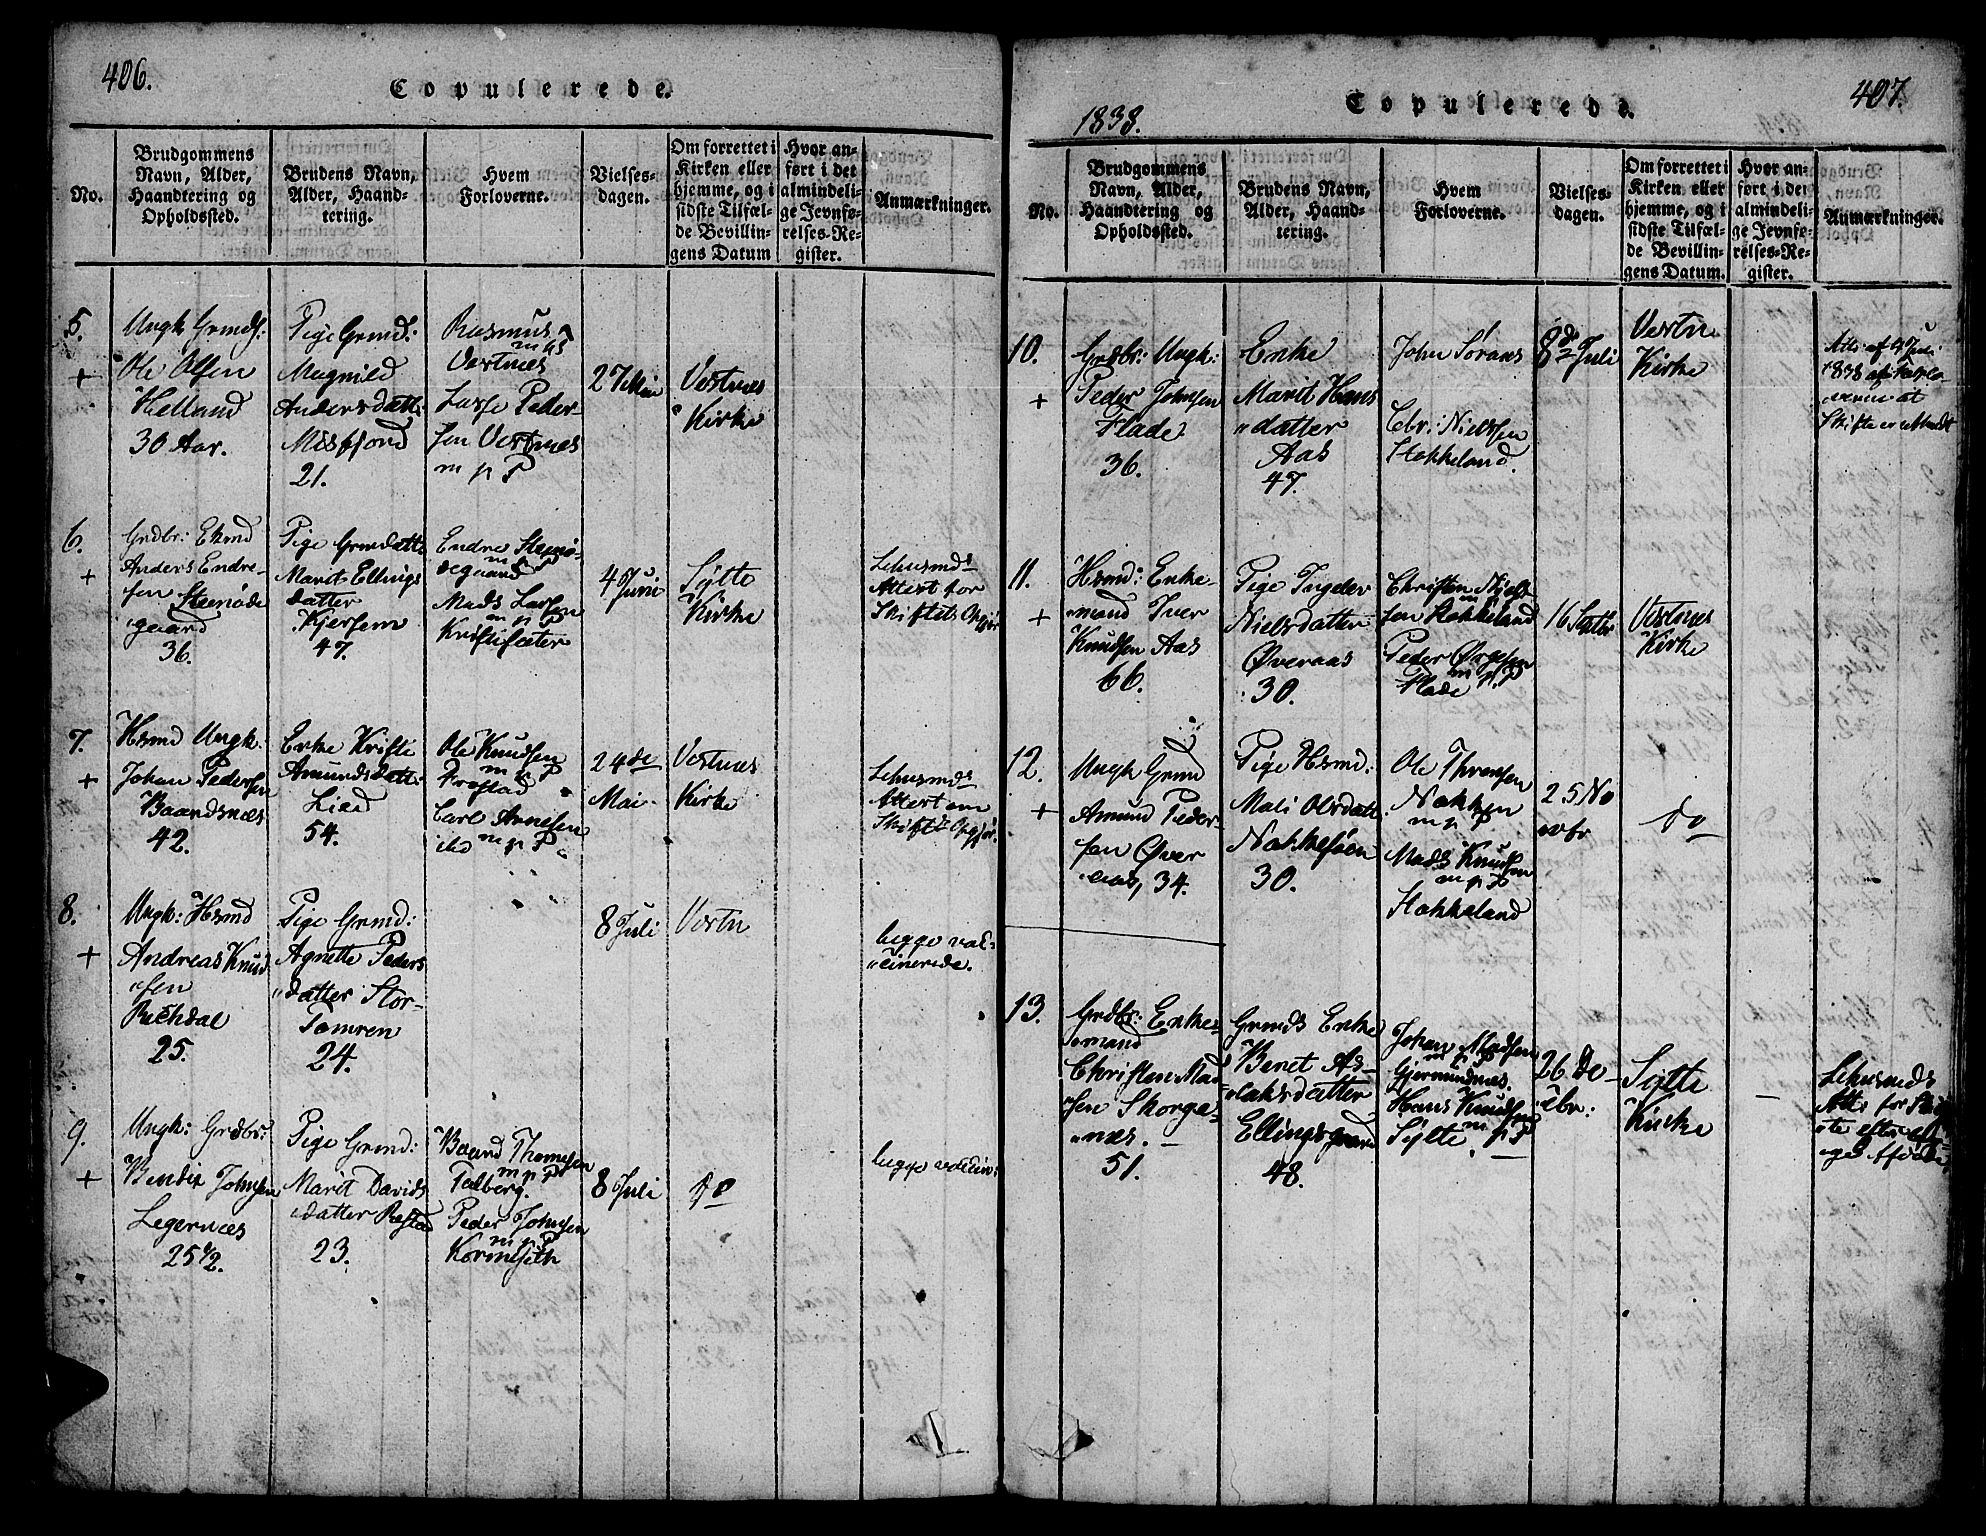 406.
Copulerede.
No.
Brudgommens
Navn, Alder,
Haandtering og
Opholdssted.
Brudens Navn,
Alder, Haand-
tering.
Hvem
Forloverne.
Vielses-
dagen.
Om forrettet i
Kirken eller
hjemme, og i
sidste Tilfæl-
de Bevillin-
gens Datum
Hvor an-
ført i det
almindeli-
ge Jevnfø-
relses-Re-
gister.
Anmærkninger.
5.
+
Ungk. Grmds:
Ole Olsen
Helland
30 Aar.
Pige Grmd:
Magnild
Andersdatt:
Misfjord
21.
Rasmus
Vestnæs
Lasse Peder-
sen Vestnæs
m p P
27 Mai
Vestnæs
Kirke
6.
+
Grdbr: Ekmd
Anders Endre-
sen Steenøde
gaard
36.
Pige Grmdatt:
Marit Ellings
datter
Kjersem
47.
Endre Steenø-
degaard
m p P
Mads Larsen
m p P
4 Juni
Sylte
Kirke
Lehnsmds
Attest for
Skiftets Opgjør
7.
+
Hsmd Ungk.
Johan Pedersen
Baardsnæs
42.
Enke Kristi
Amundsdatt:
Lied
54.
Ole Knudsen
m p P
Frostad
Carl Arnesen
ibd m p P
24de
Mai
Vestnæs
Kirke
Lehnsmds
Attest om
Skiftets Opgjør.
8.
+
Ungk: Hsmd
Andreas Knud
sen
Rekdal
25.
Pige Grmd:
Agnette Peders
datter Stor-
Tomren
24.
8 Juli
Vestn
begge vac-
cinerede.
9.
+
Ungk: Grdbr:
Bendix Johnsen
Legernæs
25 1/2.
Pige Grmd:
Marit Davids
datter Restad
23.
Baard Thomesen
m p P
Talberg.
Peder Johnsen
m p P
8 Juli
do
begge vaccin:
407.
1838.
Copulerede.
No.
Brudgommens
Navn, Alder,
Haandtering og
Opholdssted.
Brudens Navn,
Alder, Haand-
tering.
Hvem
Forloverne.
Vielses-
dagen.
Om forrettet i
Kirken eller
hjemme, og i
sidste Tilfæl-
de Bevillin-
gens Datum.
Hvor an-
ført i det
almindeli-
ge Jevnfø-
relses-Re-
gister.
Anmærkninger.
10.
+
Grdbr: Ungk:
Peder Johnsen
Flade
36.
Enke
Marit Hans
datter
Aas
47.
John Søraas
Nielsen
Stokkeland.
8de Juli
Vestn
Kirke
Att: af 4 Juli
1838
at
Skifte er
11.
+
Hsmd: Enke-
mand Iver
Knudsen Aas
66.
Pige Ingeler
Nielsdatter
Øveraas
30.
Christen Niels
sen Stokkeland
Peder Ørgesen
m p P
Flade
16 Septbr
Vestnæs
Kirke
12.
+
Ungk Grmd
Amund Peder-
sen Øver
aas, 34.
Pige Hsmd:
Mali Olsdatt
Nakkesøen
30.
Ole Thronsen
Nakken
m p P
Mads Knudsen
m p P
Stokkeland
25 No
vbr
do
13.
Grdbr: Enke-
mand
Christen Mad
sen Skorge-
næs.
51.
Grmds Enke
Beret As-
laksdatter
Ellingsgaard
48.
Johan Madsen
m p P
Gjermundnæs.
Hans Knudsen
Sylte m p P
26 De-
cbr:
Sylte
Kirke
Lehnsmds
Att: for Skif
te efter